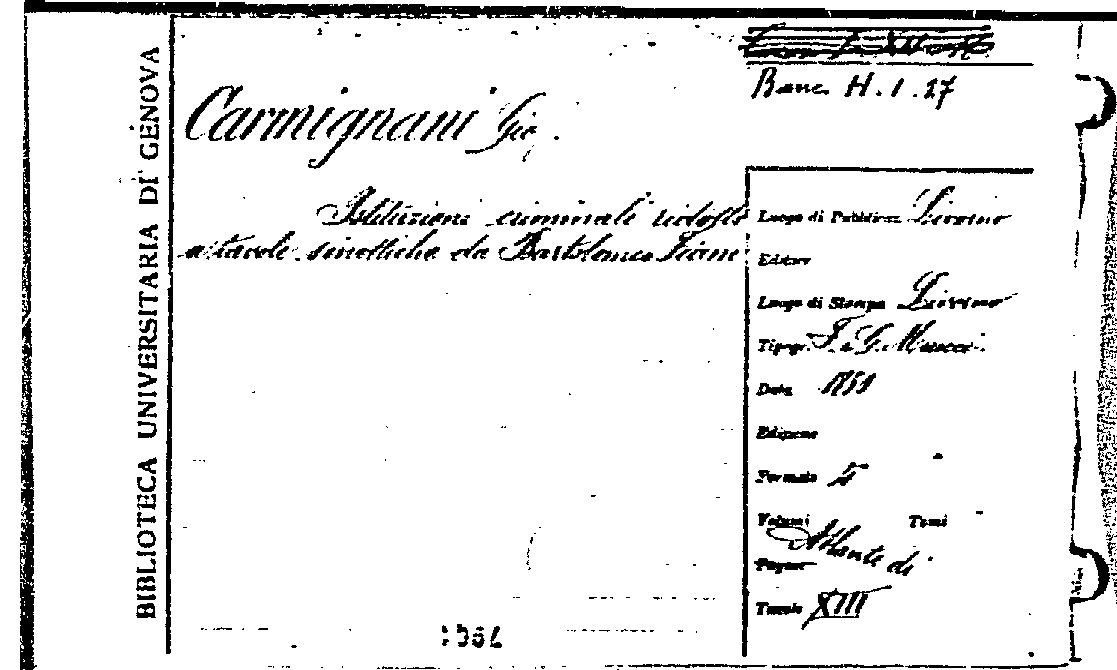 BIBLIOTECA UNIVERSITARIA DI GENOVA
Banc. H. 1. 27
Carmignani Gio.
Istituzioni criminali ridotte
a tavole sinottiche da Bartolomeo
Luogo di Pubblicaz. Livorno
Editore
Luogo di Stampa Livorno
Tipogr. F. e G. Meucci
Data
Edizione
Formato
Volumi Tomi
Pagine Atlante di
Tavole XIII